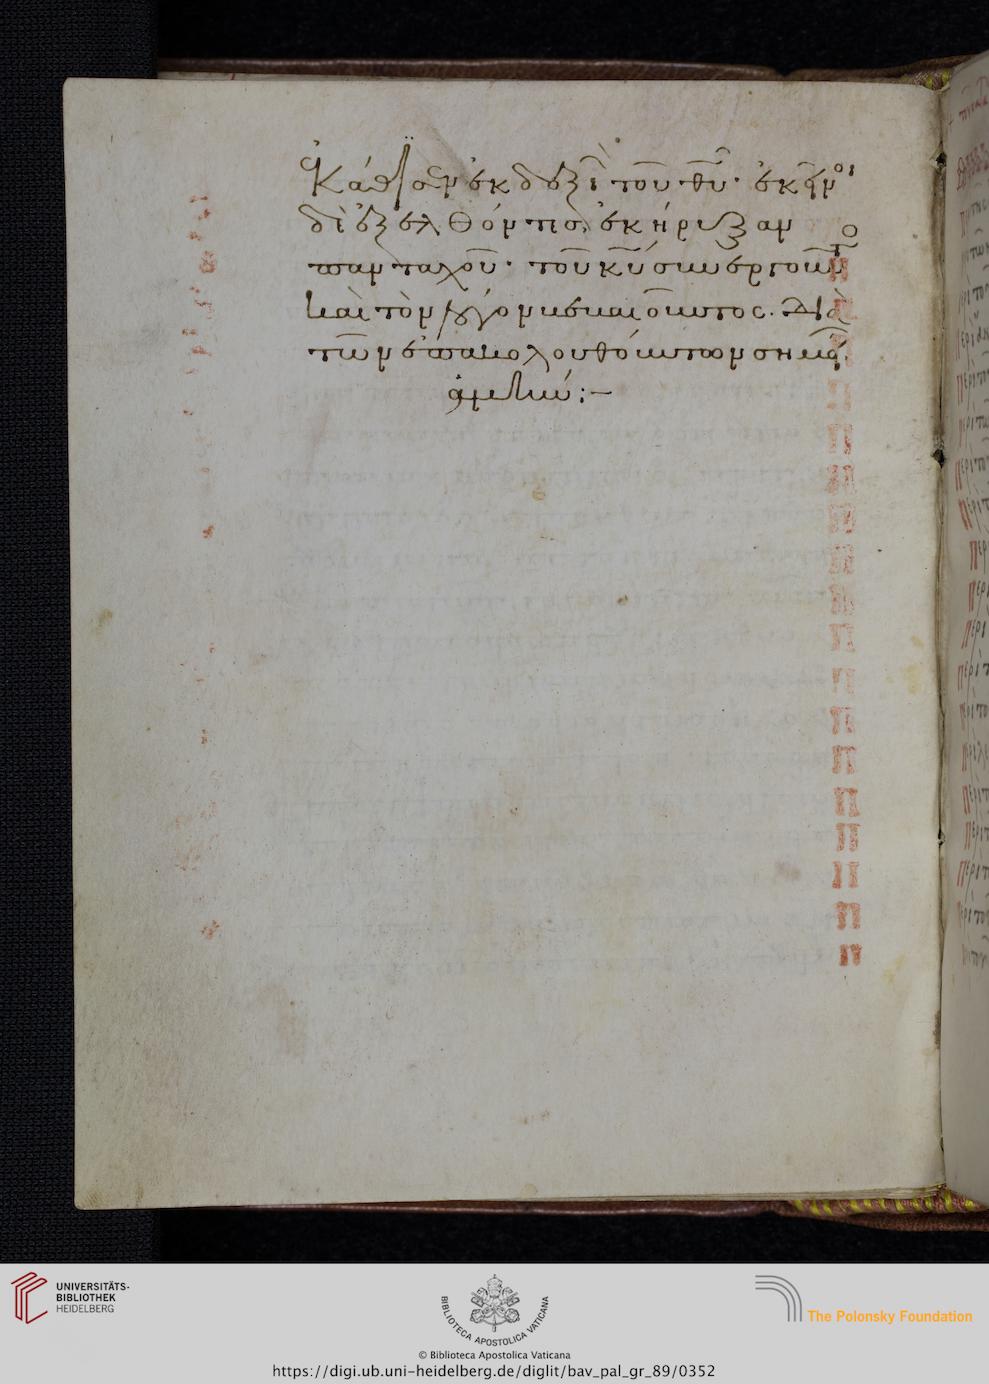 ἐκάθισεν ἐκ δεξι τοῦ θυ· ἐκεῖνοι
δὲ ἐξελθόντες, ἐκήρυξαν
πανταχοῦ· τοῦ κυ συνεργοῦντο
καὶ τὸν λόγον βεβαιοῦντος. διὰ
τῶν ἐπακολουθούντων σημεί
ἀμήν:—
UNIVERSITÄTS-
BIBLIOTHEK
HEIDELBERG
BIBLIOTECA APOSTOLICA VATICANA
The Polonsky Foundation
© Biblioteca Apostolica Vaticana
https://digi.ub.uni-heidelberg.de/diglit/bav_pal_gr_89/0352